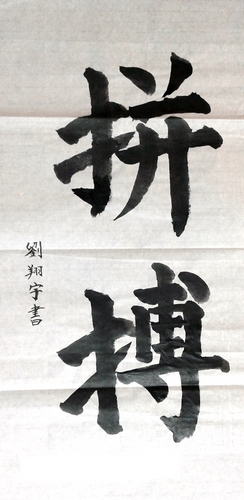 拼搏
劉翔宇書